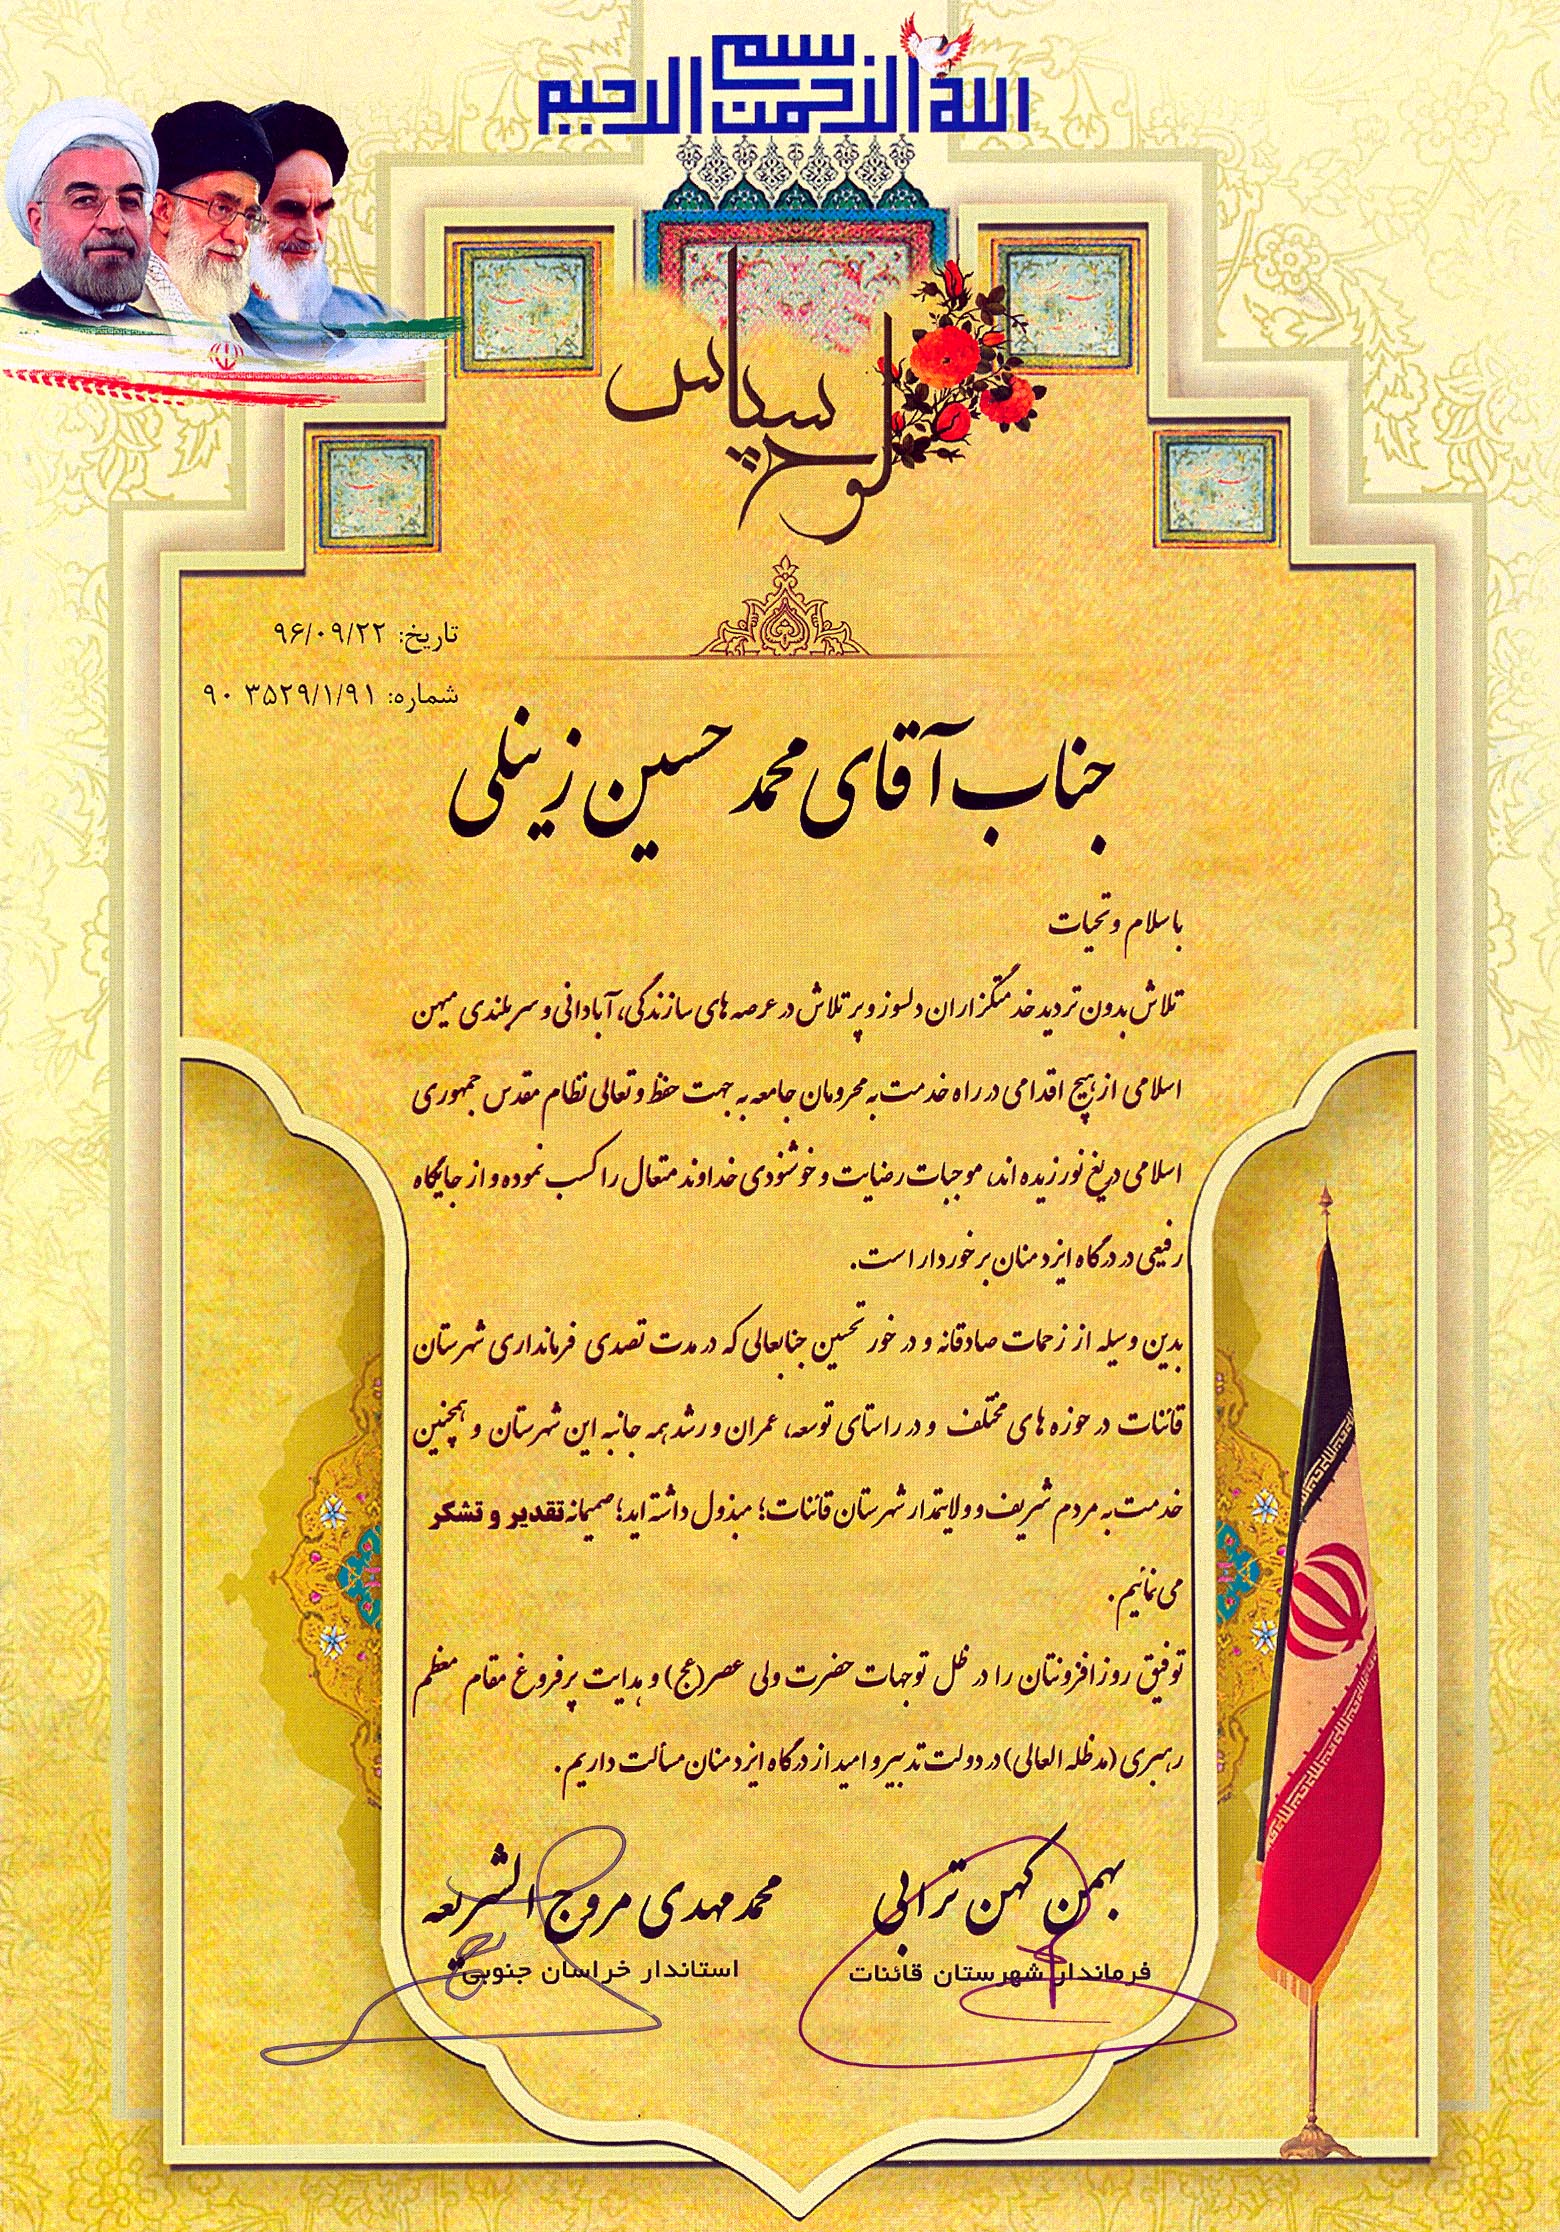 بسم الله الرحمن الرحیم
لوح سپاس
تاریخ: ۹۶/۰۹/۲۲
شماره: ۹۰ ۳۵۲۹/۱/۹۱
جناب آقای محمد حسین زینلی
با سلام و تحیات
تلاش بدون تردید خدمتگزاران دلسوز و پرتلاش در عرصه های سازندگی، آبادانی و سربلندی میهن
اسلامی از هیچ اقدامی در راه خدمت به محرومان جامعه به جهت حفظ و تعالی نظام مقدس جمهوری
اسلامی دریغ نورزیده اند، موجبات رضایت و خوشنودی خداوند متعال را کسب نموده و از جایگاه
رفیعی در درگاه ایزد منان برخوردار است.
بدین وسیله از زحمات صادقانه و در خور تحسین جنابعالی که در مدت تصدی فرمانداری شهرستان
قائنات در حوزه های مختلف و در راستای توسعه، عمران و رشد همه جانبه این شهرستان و همچنین
خدمت به مردم شریف و ولایتمدار شهرستان قائنات؛ مبذول داشته اید؛ صمیمانه تقدیر و تشکر
می نمائیم.
توفیق روزافزونتان را در ظل توجهات حضرت ولی عصر(عج) و هدایت پرفروغ مقام معظم
رهبری (مدظله العالی) در دولت تدبیر و امید از درگاه ایزد منان مسألت داریم.
بهمن کهن ترابی
فرماندار شهرستان قائنات
محمد مهدی مروج الشریعه
استاندار خراسان جنوبی